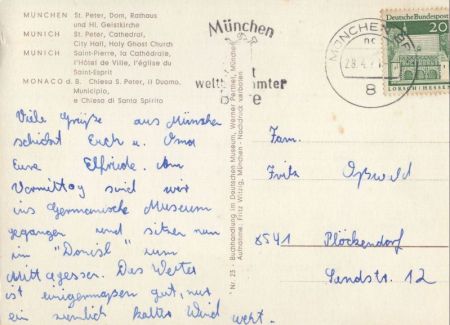 MÜNCHEN St. Peter, Dom, Rathaus
und Hl. Geistkirche
MUNICH St. Peter, Cathedral,
City Hall, Holy Ghost Church
MUNICH Saint-Pierre, la Cathédrale,
l'Hôtel de Ville, l'église du
Saint-Esprit
MONACO d. B. Chiesa S. Peter, il Duomo,
Municipio,
e Chiesa di Santo Spirito
Viele Grüße aus München
schickt Euch u. Oma
Eure Elfriede. Am
Vormittag sind wir
ins Germanische Museum
gegangen und sitzen nun
im "Donisl" zum
Mittagessen. Das Wetter
ist einigermaßen gut, nur
ein ziemlich kalter Wind weht.
Nr. 25 - Buchhandlung im Deutschen Museum, Werner Perthel, München
Aufnahme: Fritz Witzig, München - Nachdruck verboten
München
MÜNCHEN
8
Deutsche Bundespost
20
LORSCH / HESSEN
Fam.
Fritz Oßwald
8541 Plöckendorf
Sandstr. 12